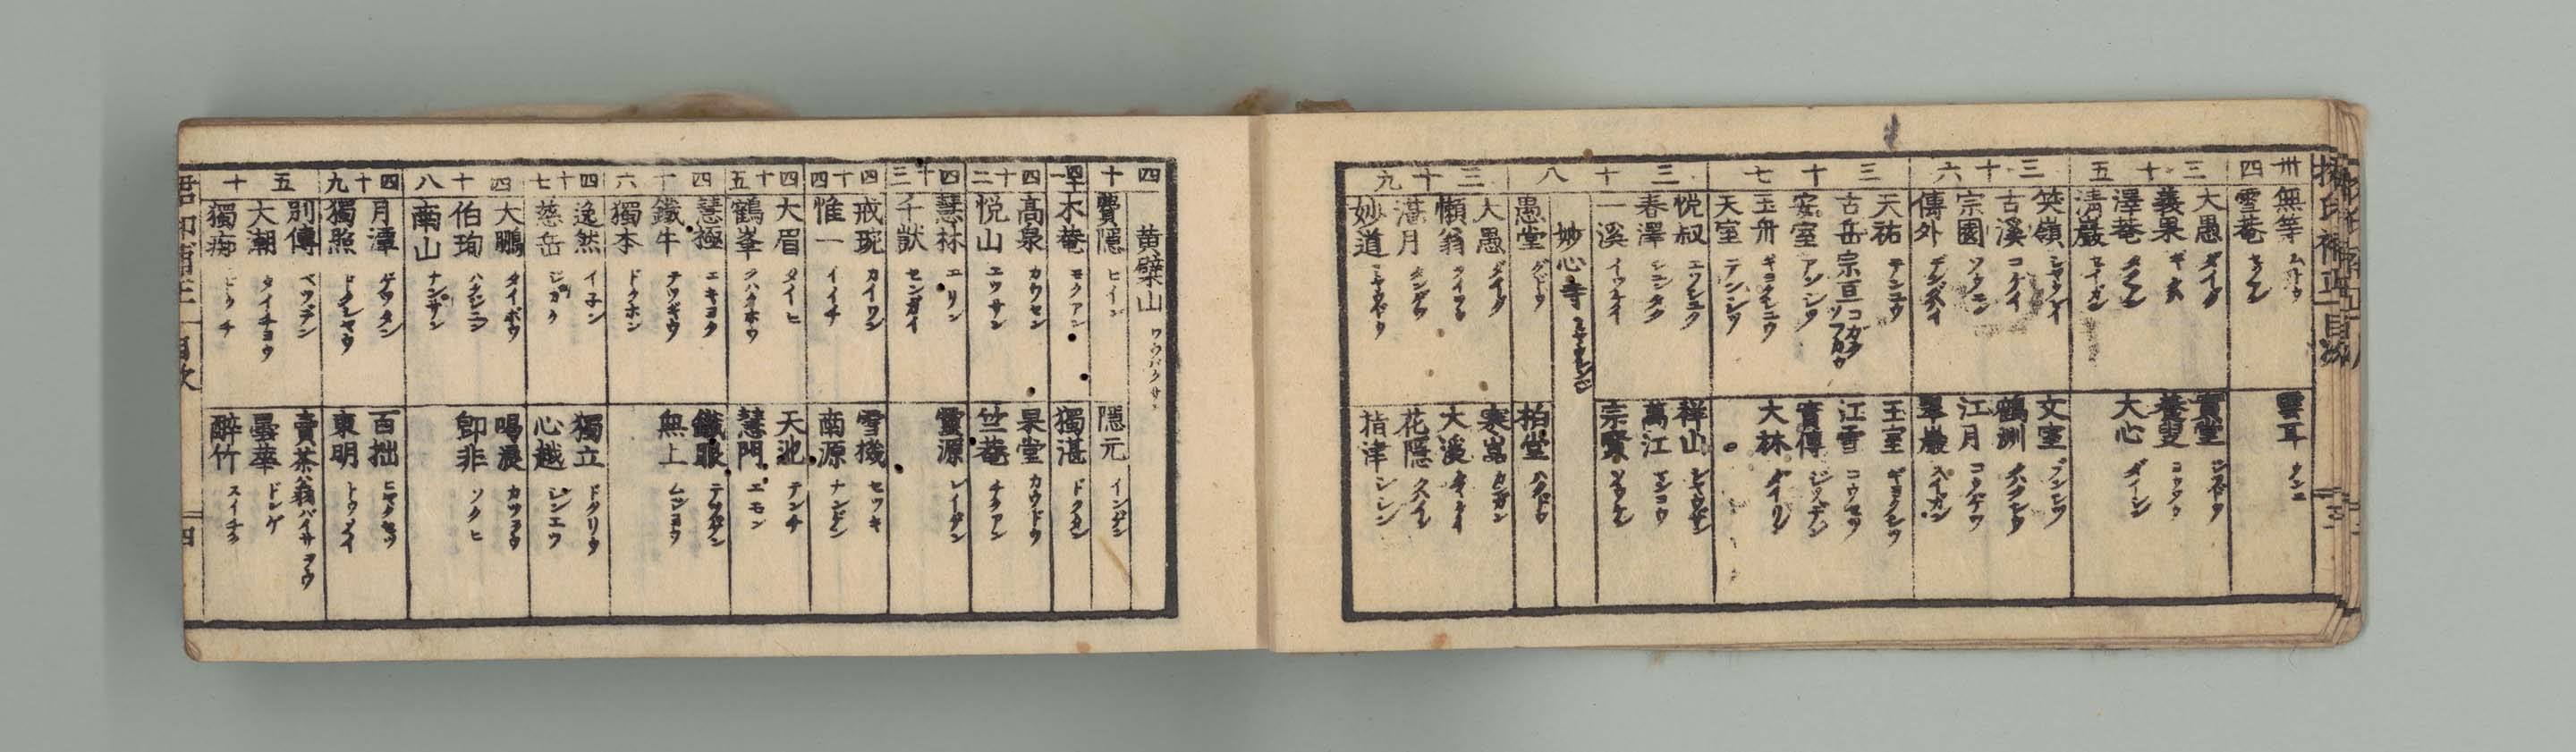 卅四
無等 ムトウ
雪菴
雲耳 ウンニ
三十五
大愚 ダイグ
義果 ギクハ
澤菴 タクアン
清巖 セイガン
實堂 ジツドウ
養叟
大心 ダイシン
三十六
笑嶺 シヤウレイ
古溪 コケイ
宗園 ソウエン
傳外 デングハイ
文室 ブンシツ
鶴洲
江月 コウゲツ
翠巖 スイガン
三十七
天祐 テンユウ
古岳宗亘 コガクソフカウ
安室 アンシツ
玉舟 ギョクシユウ
天室 テンシツ
玉室 ギヨクシツ
江雪 コウセツ
實傳 ジツデン
大林 ダイリン
三十八
悦叔 エツシユク
春澤 シユンタク
一溪 イツケイ
祥山
萬江 マンコウ
宗賢
妙心寺
愚堂 グドウ
柏堂 ハクドウ
三十九
大愚 ダイグ
懶翁
湛月 タンゲツ
妙道
寒嵩
大溪 タイケイ
花隱 クハイン
指津 シシン
四十
黄檗山 ワウバクサン
費隱 ヒイン
隱元 インゲン
四十一
木菴 モクアン
獨湛 ドクタン
四十二
高泉 カウセン
悦山 エツサン
杲堂 カウドウ
竺菴 チクアン
四十三
慧林 エリン
千獃 センガイ
靈源 レイゲン
四十四
戒琬 カイワン
惟一 イイチ
雪機 セツキ
南源 ナンゲン
四十五
大眉 タイヒ
鶴峯 クハクホウ
天池 テンチ
慧門 エモン
四十六
慧極 エキヨク
鐵牛 テツギウ
獨本 ドクホン
鐵眼 テツゲン
無上 ムジヨウ
四十七
逸然 イ子ン
慈岳 ジガク
獨立 ドクリウ
心越 シンエツ
四十八
大鵬 タイホウ
伯珣 ハクジユン
南山 ナンザン
喝浪 カツラウ
即非 ソクヒ
四十九
月潭 ゲツタン
獨照 ドクシヤウ
百拙 ヒヤクセツ
東明 トウメイ
五十
別傳 ベツデン
大潮 タイチヨウ
獨癡 ドクチ
賣茶翁 バイサヲウ
曇華 ドンゲ
醉竹 スイチク
目次
四